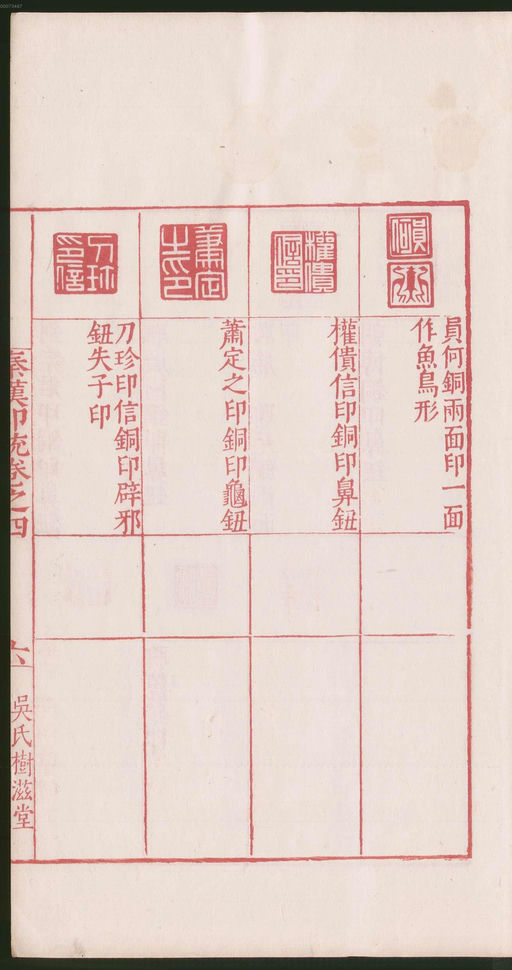 員何銅兩面印一面
作魚鳥形
權僨信印銅印鼻鈕
蕭定之印銅印龜鈕
刀珍印信銅印辟邪
鈕失子印
秦漢印統卷之四
六
吳氏樹滋堂
00073447